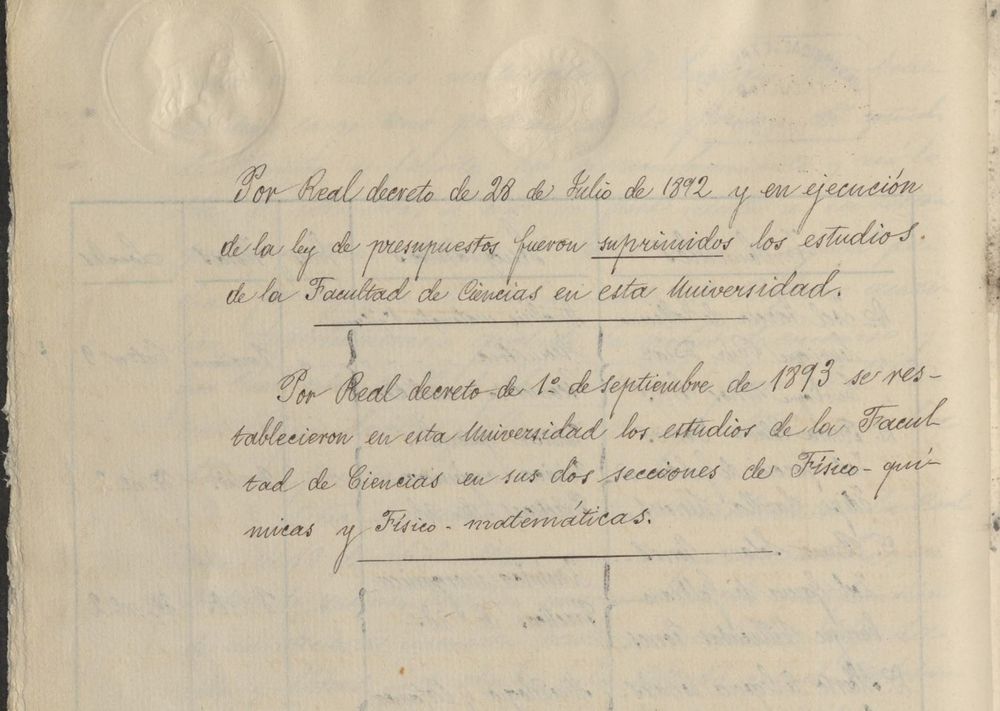 Por Real decreto de 28 de Julio de 1892 y en ejecución
de la ley de presupuestos fueron suprimidos los estudios
de la Facultad de Ciencias en esta Universidad.
Por Real decreto de 1º de septiembre de 1893 se res-
tablecieron en esta Universidad los estudios de la Facul-
tad de Ciencias en sus dos secciones de Físico-quí-
micas y Físico-matemáticas.